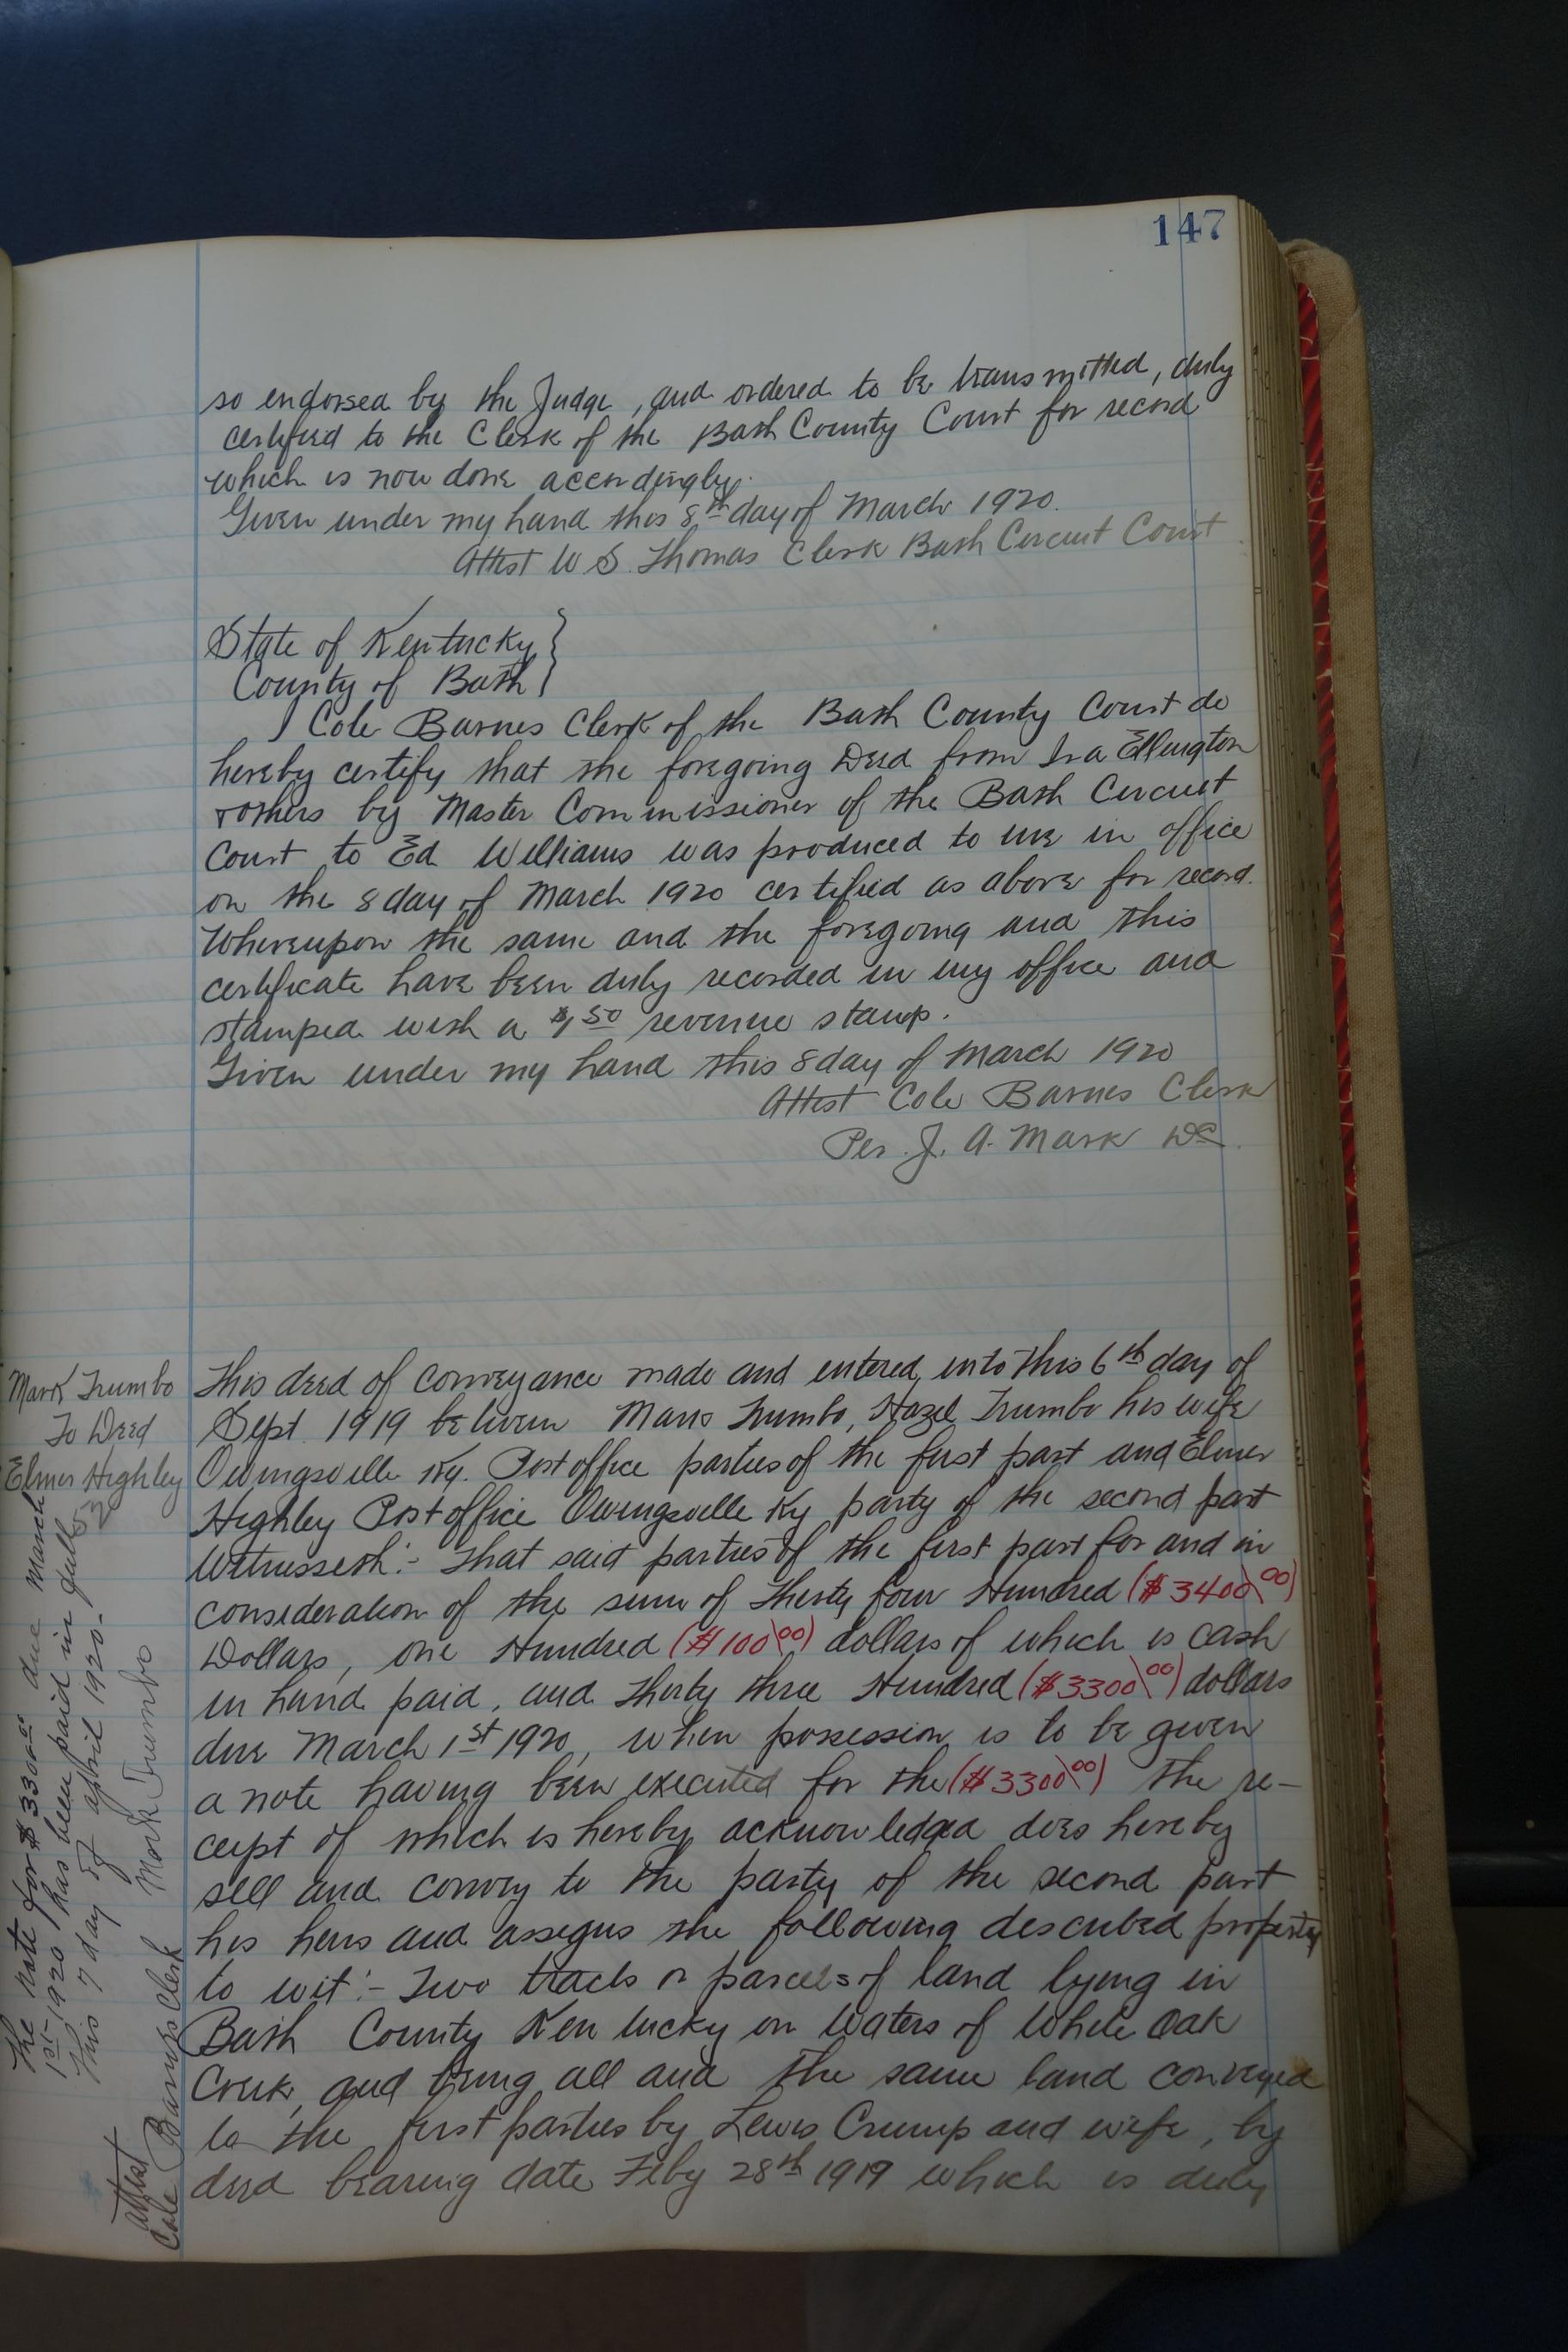 147
so endorsed by the Judge, and ordered to be transmitted, duly
certified to the Clerk of the Bath County Court for record
which is now done accordingly.
Given under my hand this 8th day of March 1920.
Attest W. S. Thomas Clerk Bath Circuit Court
State of Kentucky }
County of Bath }
I Cole Barnes Clerk of the Bath County Court do
hereby certify that the foregoing Deed from Ira Ellington
& others by Master Commissioner of the Bath Circuit
Court to Ed Williams was produced to me in office
on the 8 day of March 1920 certified as above for record.
Whereupon the same and the foregoing and this
certificate have been duly recorded in my office and
stamped with a $1.50 revenue stamp.
Given under my hand this 8 day of March 1920
Attest Cole Barnes Clerk
Per J. A. Mark DC.
Mark Trumbo
To Deed
Elmer Highley
This deed of conveyance made and entered into this 6th day of
Sept. 1919 between Mark Trumbo, Hazel Trumbo his wife
Owingsville Ky. Post office parties of the first part and Elmer
Highley Post office Owingsville Ky party of the second part
Witnesseth:- That said parties of the first part for and in
consideration of the sum of Thirty four Hundred ($3400\00)
Dollars, one Hundred ($100\00) dollars of which is cash
in hand paid, and Thirty three Hundred ($3300\00) dollars
due March 1st 1920, when possession is to be given
a note having been executed for the ($3300\00) the re-
ceipt of which is hereby acknowledged does hereby
sell and convey to the party of the second part
his heirs and assigns the following described property
to wit:- Two tracts or parcels of land lying in
Bath County Kentucky on Waters of White Oak
Creek, and being all and the same land conveyed
to the first parties by Lewis Crump and wife, by
deed bearing date Feby 28th 1919 which is duly
The note for $3300.00 due March
1st-1920 has been paid in full
This 7 day of april 1920.
Mark Trumbo
attest
Cole Barnes Clerk